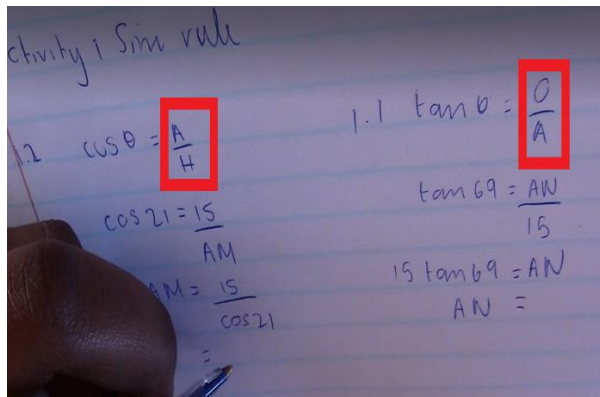 ctivity 1 Sine rule
1.2 cos θ = A
H
cos 21 = 15
AM
AM = 15
cos 21
=
1.1 tan θ = O
A
tan 69 = AN
15
15 tan 69 = AN
AN =